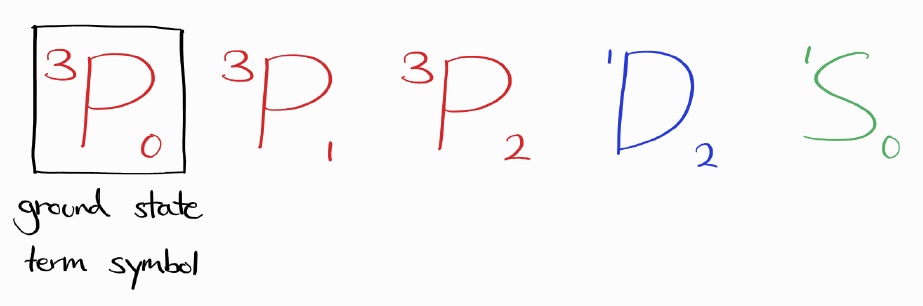 ³P₀ ³P₁ ³P₂ ¹D₂ ¹S₀
ground state
term symbol